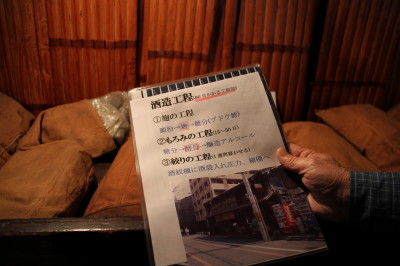 酒造工程
①麹の工程
澱粉→麹→糖分(ブドウ糖)
②もろみの工程
糖分→酵母→醸造アルコール
③絞りの工程
酒絞機に酒袋入れ圧力、